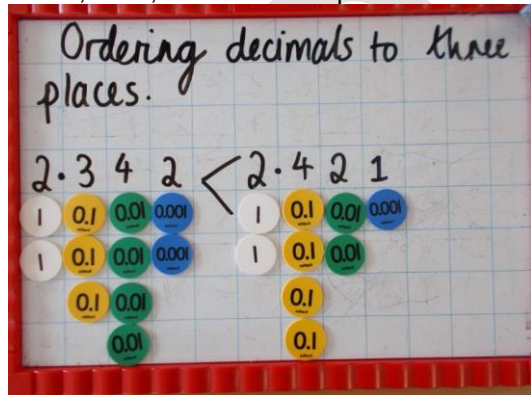 Ordering decimals to three
places.
2.342 < 2.421
1 0.1 0.01 0.001 1 0.1 0.01 0.001
1 0.1 0.01 0.001 1 0.1 0.01
0.1 0.01 0.1
0.01 0.1